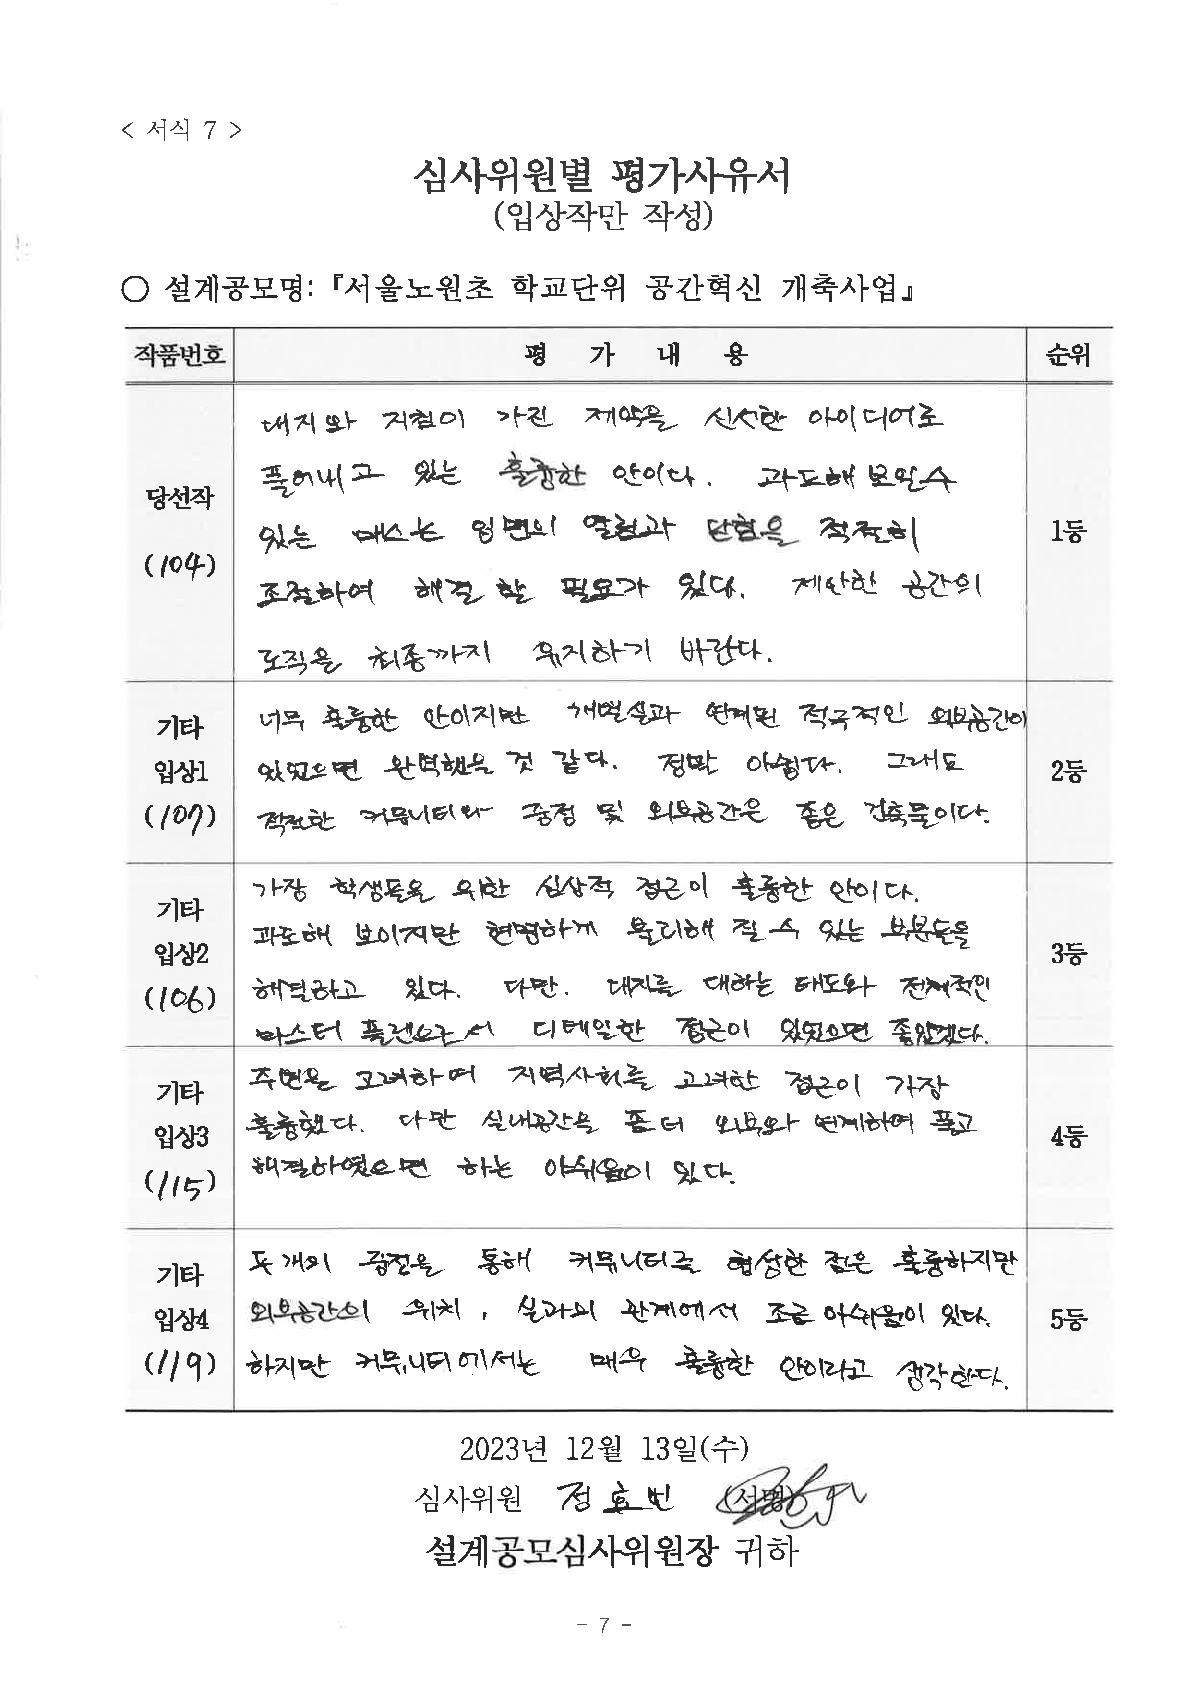 < 서식 7 >
심사위원별 평가사유서
(입상작만 작성)
○ 설계공모명:『서울노원초 학교단위 공간혁신 개축사업』
작품번호 평 가 내 용 순위
당선작
(104)
대지와 지침이 가진 제약을 신선한 아이디어로
풀어내고 있는 훌륭한 안이다. 과도해 보일수
있는 매스는 입면의 열림과 닫힘을 적절히
조절하여 해결 할 필요가 있다. 제안한 공간의
조직을 최종까지 유지하기 바란다.
1등
기타
입상1
(107)
너무 훌륭한 안이지만 개별실과 연계된 적극적인 외부공간이
있었으면 완벽했을 것 같다. 정말 아쉽다. 그래도
적절한 커뮤니티와 중정 및 외부공간은 좋은 건축물이다.
2등
기타
입상2
(106)
가장 학생들을 위한 심상적 접근이 훌륭한 안이다.
과도해 보이지만 현명하게 불리해 질 수 있는 부분들을
해결하고 있다. 다만. 대지를 대하는 태도와 전체적인
마스터 플랜으로서 디테일한 접근이 있었으면 좋았겠다.
3등
기타
입상3
(115)
주변을 고려하며 지역사회를 고려한 접근이 가장
훌륭했다. 다만 실내공간을 좀 더 외부와 연계하여 풀고
해결하였으면 하는 아쉬움이 있다.
4등
기타
입상4
(119)
두 개의 중정을 통해 커뮤니티를 형성한 점은 훌륭하지만
외부공간의 위치, 실과의 관계에서 조금 아쉬움이 있다.
하지만 커뮤니티에서는 매우 훌륭한 안이라고 생각한다.
5등
2023년 12월 13일(수)
심사위원 정효빈 (서명)
설계공모심사위원장 귀하
- 7 -